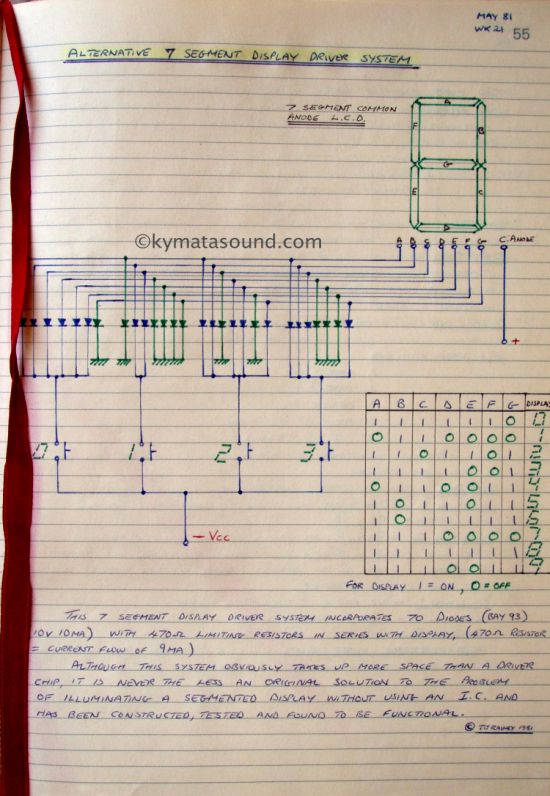 MAY 81
WK 21 55
ALTERNATIVE 7 SEGMENT DISPLAY DRIVER SYSTEM
7 SEGMENT COMMON
ANODE L.C.D.
A
F B
G
E C
D
©kymatasound.com
A B C D E F G C. ANODE
+
0 1 2 3
- Vcc
A B C D E F G DISPLAY
1 1 1 1 1 1 0 0
0 1 1 0 0 0 0 1
1 1 0 1 1 0 1 2
1 1 1 1 0 0 1 3
0 1 1 0 0 1 1 4
1 0 1 1 0 1 1 5
1 0 1 1 1 1 1 6
1 1 1 0 0 0 0 7
1 1 1 1 1 1 1 8
1 1 1 0 0 1 1 9
FOR DISPLAY 1 = ON, 0 = OFF
THIS 7 SEGMENT DISPLAY DRIVER SYSTEM INCORPORATES 70 DIODES (BAY 93)
10V 10MA) WITH 470Ω LIMITING RESISTORS IN SERIES WITH DISPLAY, (470Ω RESISTOR
= CURRENT FLOW OF 9MA)
ALTHOUGH THIS SYSTEM OBVIOUSLY TAKES UP MORE SPACE THAN A DRIVER
CHIP, IT IS NEVER THE LESS AN ORIGINAL SOLUTION TO THE PROBLEM
OF ILLUMINATING A SEGMENTED DISPLAY WITHOUT USING AN I.C. AND
HAS BEEN CONSTRUCTED, TESTED AND FOUND TO BE FUNCTIONAL.
© 1981